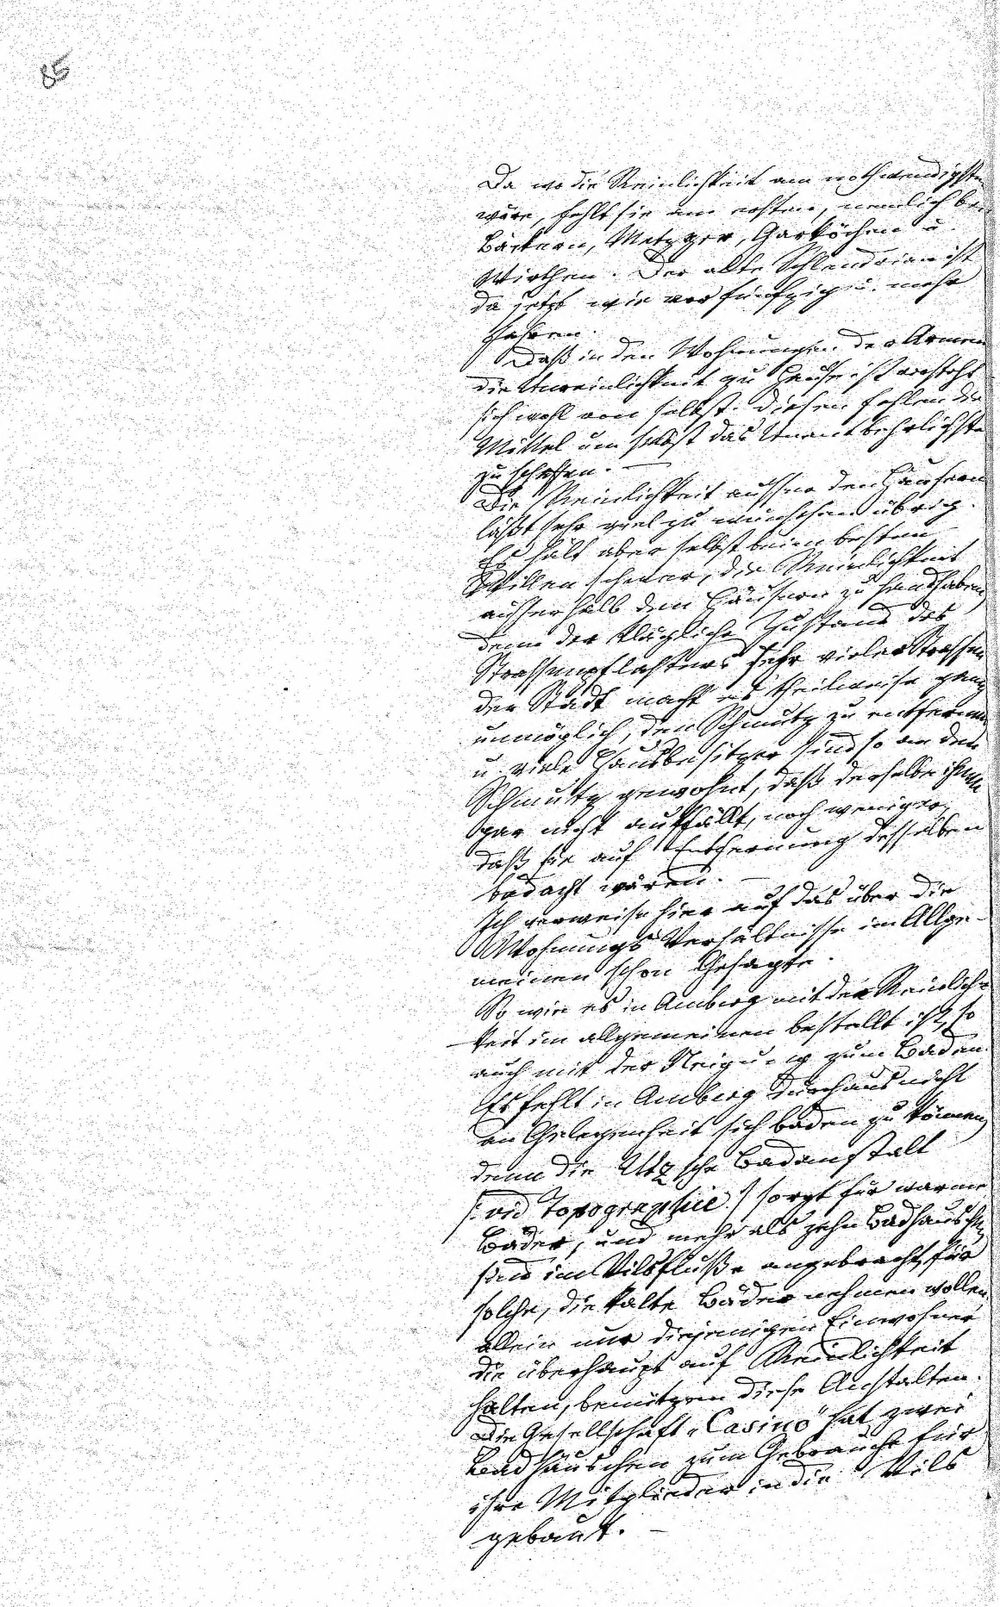 85
Da wo die Reinlichkeit am nothwendigsten
wäre, fehlt sie am ersten, nemlich bei
Bäckern, Metzger, Garköchen u.
Wirthen. Der alte Schlendrian ist
da jetzt wie vor fünfzig u. mehr
Jahren.
Daß in den Wohnungen der Armen
die Unreinlichkeit zu Hause ist versteht
sich wohl von selbst. Diesen fehlen die
Mittel um selbst das Unentbehrlichste
zu schaffen. —
Die Reinlichkeit ausser den Häusern
läßt sehr viel zu wünschen übrig.
Es hält aber selbst beim besten
Willen schwer, die Reinlichkeit
ausserhalb den Häusern zu handhaben,
denn der klägliche Zustand des
Strassenpflasters sehr vieler Strassen
der Stadt macht es theilweise ganz
unmöglich, den Schmutz zu entfernen
u. viele Hausbesitzer sind so an den
Schmutz gewohnt, daß derselbe ihnen
gar nicht auffällt, noch weniger,
daß sie auf Entfernung desselben
bedacht wären. —
Ich verweise hier auf das über die
Wohnungs Verhältnisse im Allge-
meinen schon Gesagte.
So wie es in Amberg mit der Reinlich-
keit im allgemeinen bestellt ist, so
auch mit der Neigung zum Baden.
Es fehlt in Amberg durchaus nicht
an Gelegenheit sich baden zu können,
denn die Utz'sche Badanstalt
/: vid Topographie :/ sorgt für warme
Bäder, und mehr als zehn Badhäuschen
sind im Vilsfluße angebracht für
solche, die kalte Bäder nehmen wollen,
allein nur diejenigen Einwohner
die überhaupt auf Reinlichkeit
halten, benützen diese Anstalten.
Die Gesellschaft „Casino" hat zwei
Badhäuschen zum Gebrauche für
ihre Mitglieder in die Vils
gebaut. —